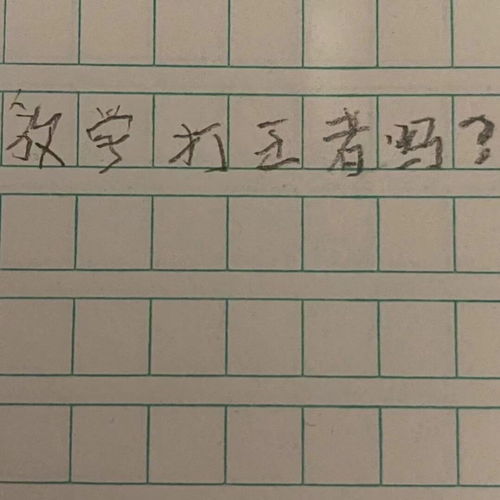 放学打王者吗？